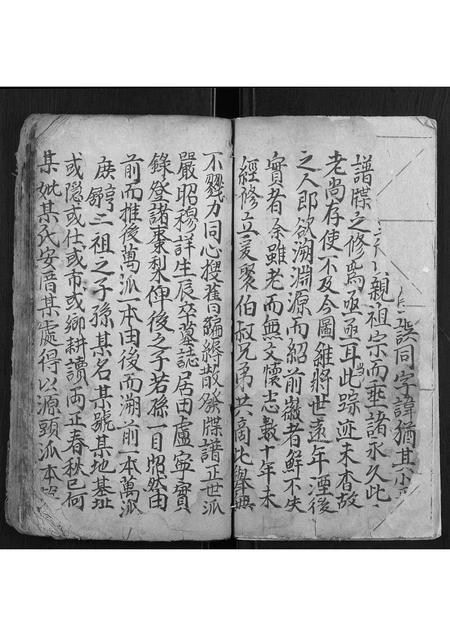 誤同字諱猶其小
親祖宗而垂諸永久此
譜牒之修焉亟亟耳此踪迹未香故
老尚存使不及今圖維將世遠年湮後
之人即欲溯淵源而紹前徽者鮮不失
實者余雖老而無文懷志數十年未
經修立爰聚伯叔兄弟共商此舉無
不戮力同心搜舊編緝散發牒譜正世派
嚴昭穆詳生辰卒葬誌居田盧寧實
錄登諸棗梨俾後之子若孫一目昭然由
前而推後萬派一本由後而溯前一本萬派
二祖之子孫某名某號某地基址
或隱或仕或市或鄉耕讀兩正春秋已何
某妣某氏安音某處得以源頭派本